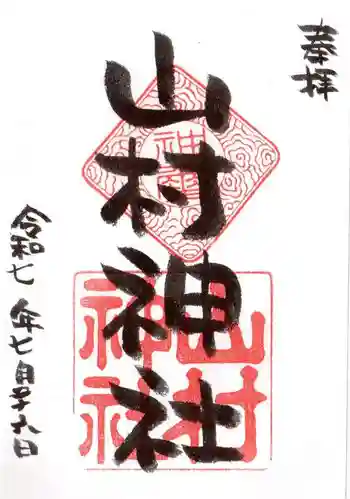 奉拝
山村神社
令和七年七月二十六日
山村
神社